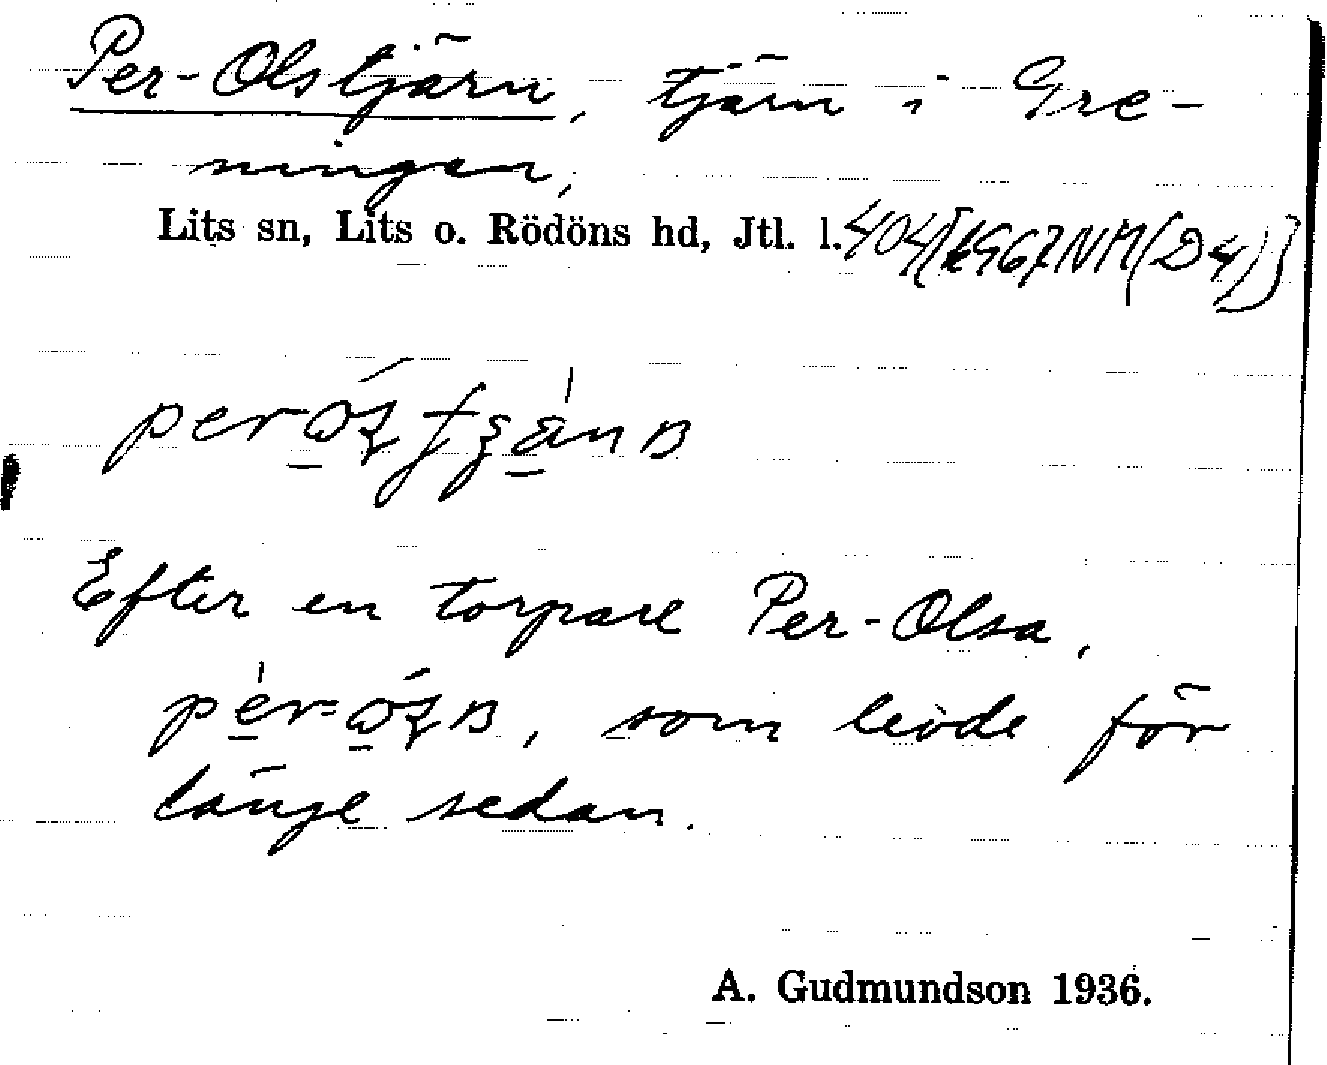 Per-Olstjärn, tjärn i Gre-
ningen,
Lits sn, Lits o. Rödöns hd, Jtl. l. 404
Efter en torpare Per-Olsa,
som levde för
länge sedan.
A. Gudmundson 1936.